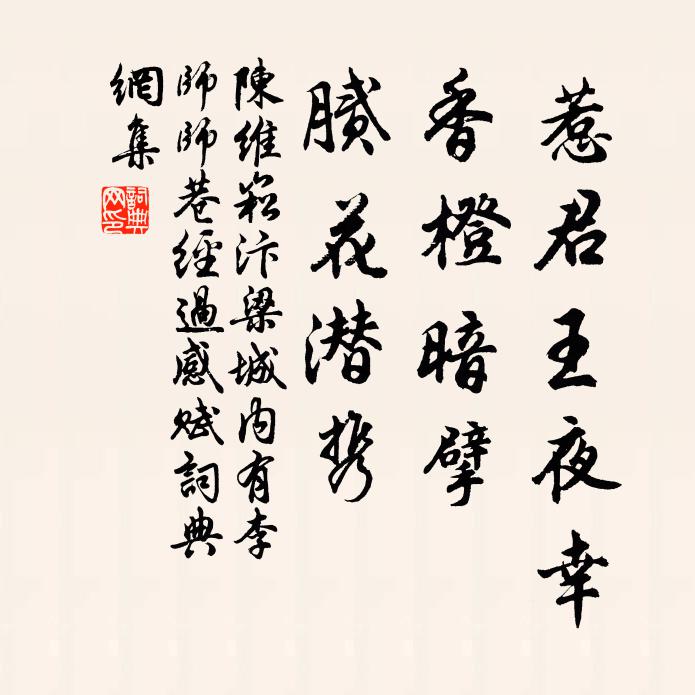 惹君王夜幸
香橙暗擘
賸花潜携
陳維崧汴梁城内有李
師師巷經過感賦詞典
網集
詞典
网印